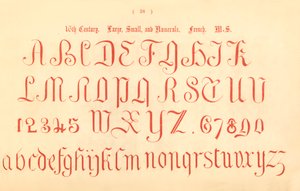 ( 28 )
16th Century. Large, Small, and Numerals. French. M.S.
A B C D E F G H I K
L M N O P Q R S T U V
1 2 3 4 5 W X Y Z . 6 7 8 9 0
a b c d e f g h ij k l m n o p q r s t u v w x y z z